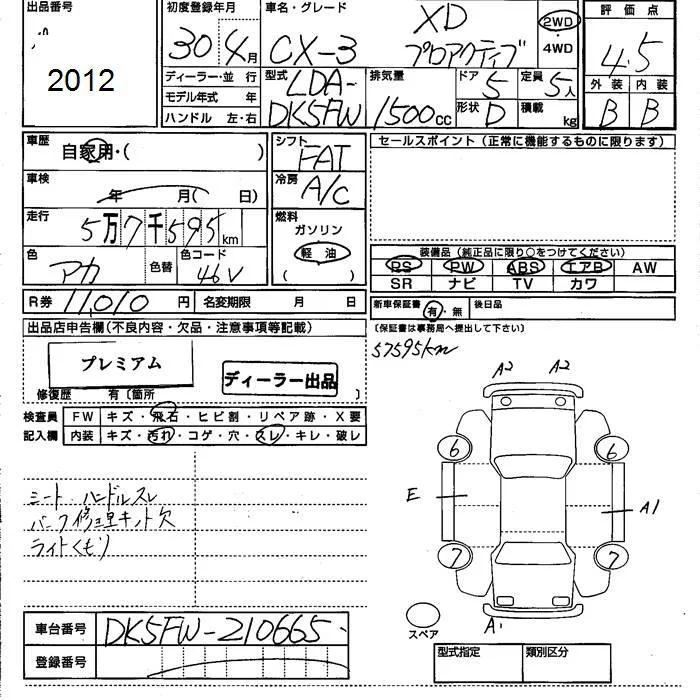 出品番号
2012
初度登録年月
30年4月
車名・グレード
CX-3 XD プロアクティブ
2WD
・4WD
評価点
4.5
外装 内装
B B
ディーラー・並 行
モデル年式 年
ハンドル 左・右
型式
LDA-
DK5FW
排気量
1500cc
ドア 5
定員 5人
形状 D
積載 kg
車歴
自家用・( )
車検
年 月( 日)
走行
5万7千595km
色
アカ
色替
色コード
46V
R券 11,010円
名変期限 月 日
シフト
FAT
冷房
A/C
燃料
ガソリン
軽油
( )
セールスポイント(正常に機能するものに限ります)
装備品(純正品に限り○をつけてください)
PS PW ABS エアB AW
SR ナビ TV カワ
新車保証書 有・無 後日品
(保証書は事務局へ提出して下さい)
57595km
出品店申告欄(不良内容・欠品・注意事項等記載)
プレミアム
ディーラー出品
修復歴 有〔箇所 〕
検査員
記入欄
FW キズ・飛石・ヒビ割・リペア跡・X要
内装 キズ・汚れ・コゲ・穴・スレ・キレ・破レ
シート・ハンドルスレ
パンク修理キット欠
ライトくもり
A2 A2
6 6
E A1
7 7
A1
スペア
車台番号 DK5FW-210665
登録番号
型式指定 類別区分